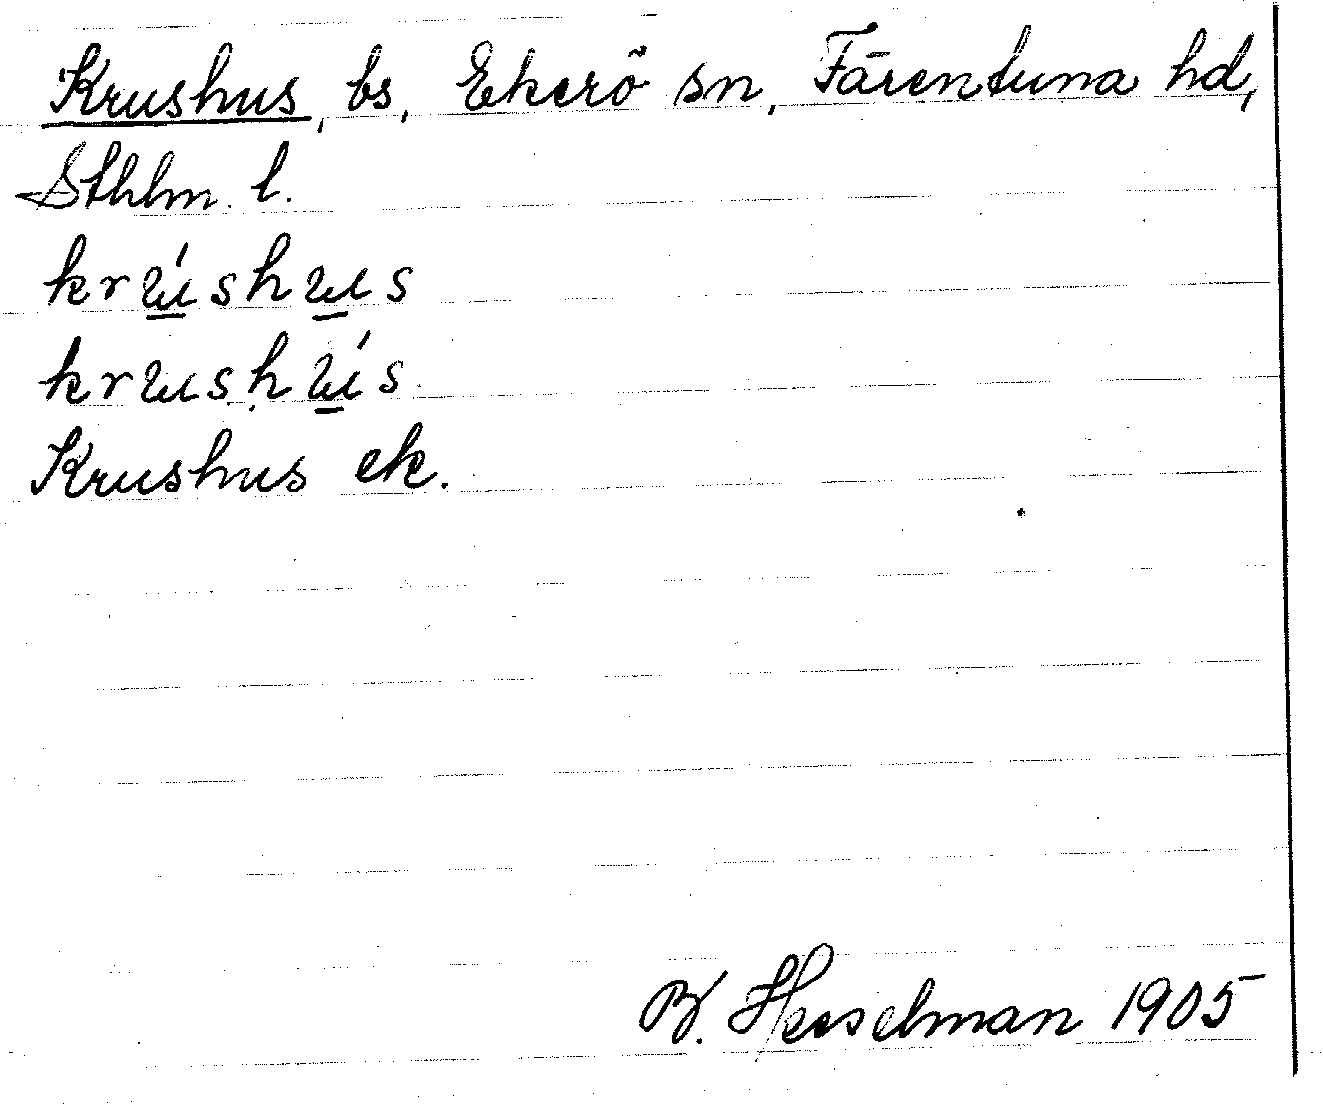 Krushus, bs, Ekerö sn, Färentuna hd,
Sthlm. l.
krúshus
krushús
Krushus ek.
B. Hesselman 1905